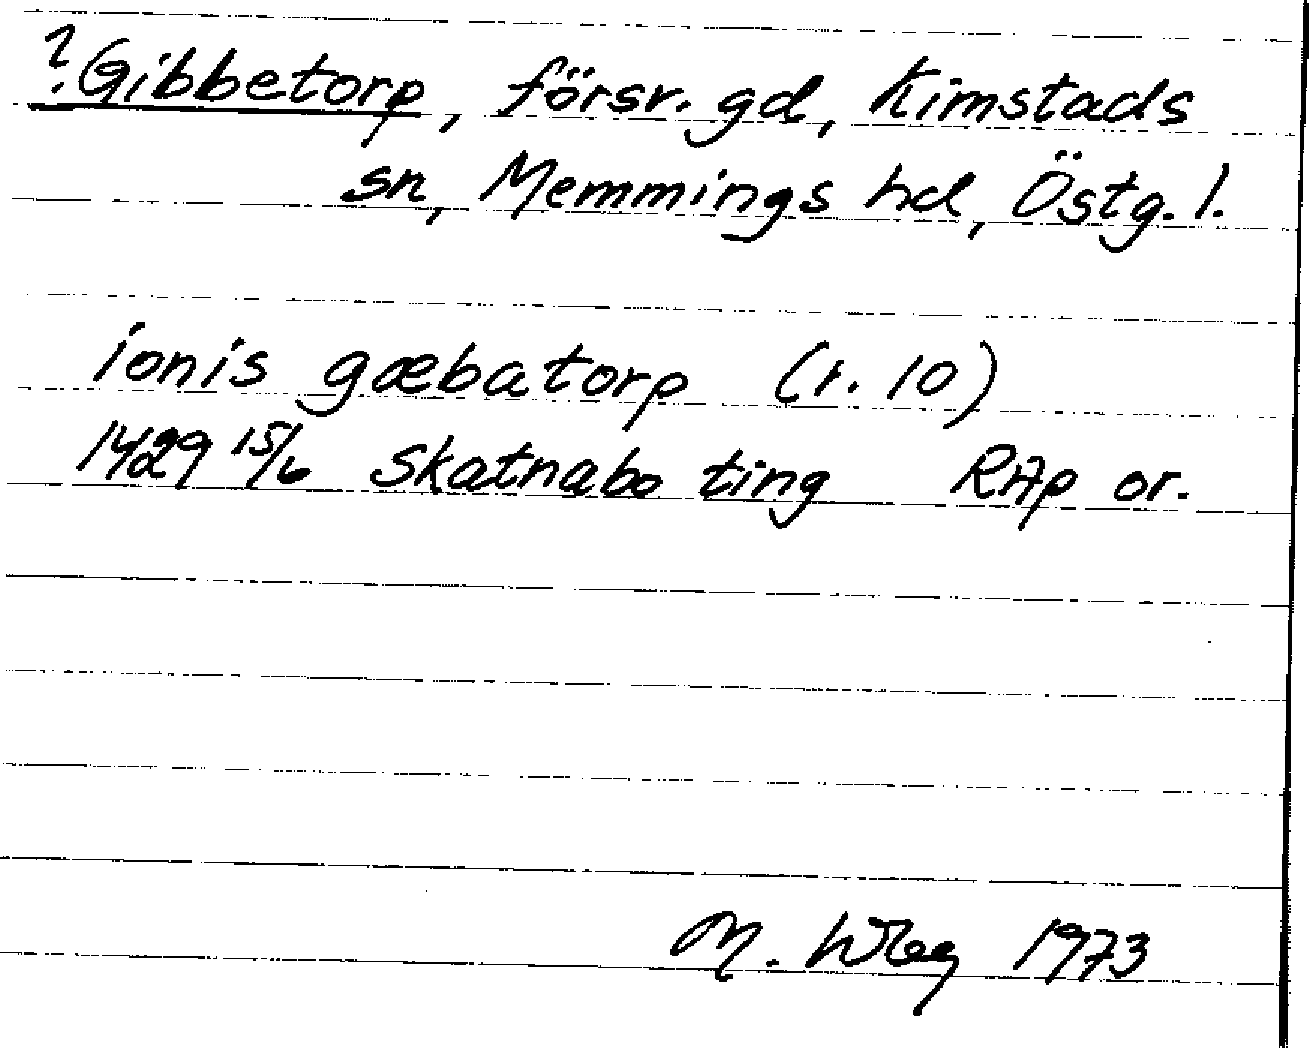 ?Gibbetorp, försv. gd, Kimstads
sn, Memmings hd, Östg. l.
ionis gæbatorp (r. 10)
1429 15/6 Skatnabo ting RAp or.
M. Wbg 1973